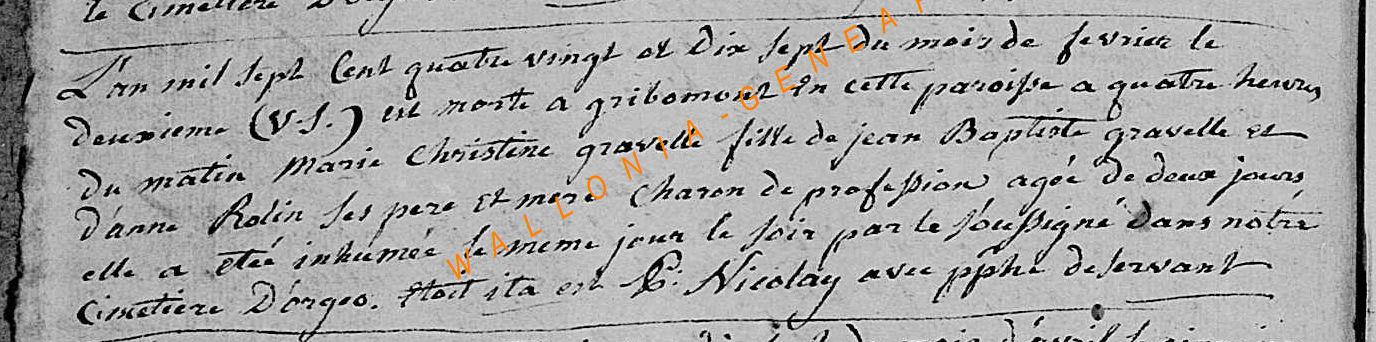 le Cimetiere D'orgeo
L'an mil sept Cent quatre vingt et Dix sept du mois de fevrier le
deuxieme (V.S.) est morte a gribomont En cette paroisse a quatre heures
Du matin Marie Christine gravelle fille de jean Baptiste gravelle et
d'anne Rolin ses pere et mere Charon de profession agée de deux jours
elle a etée inhumée le meme jour le soir par le soussigné Dans notre
Cimetiere D'orgeo. ita est Nicolay avec desservant
WALLONIA-GENEA
d'avril